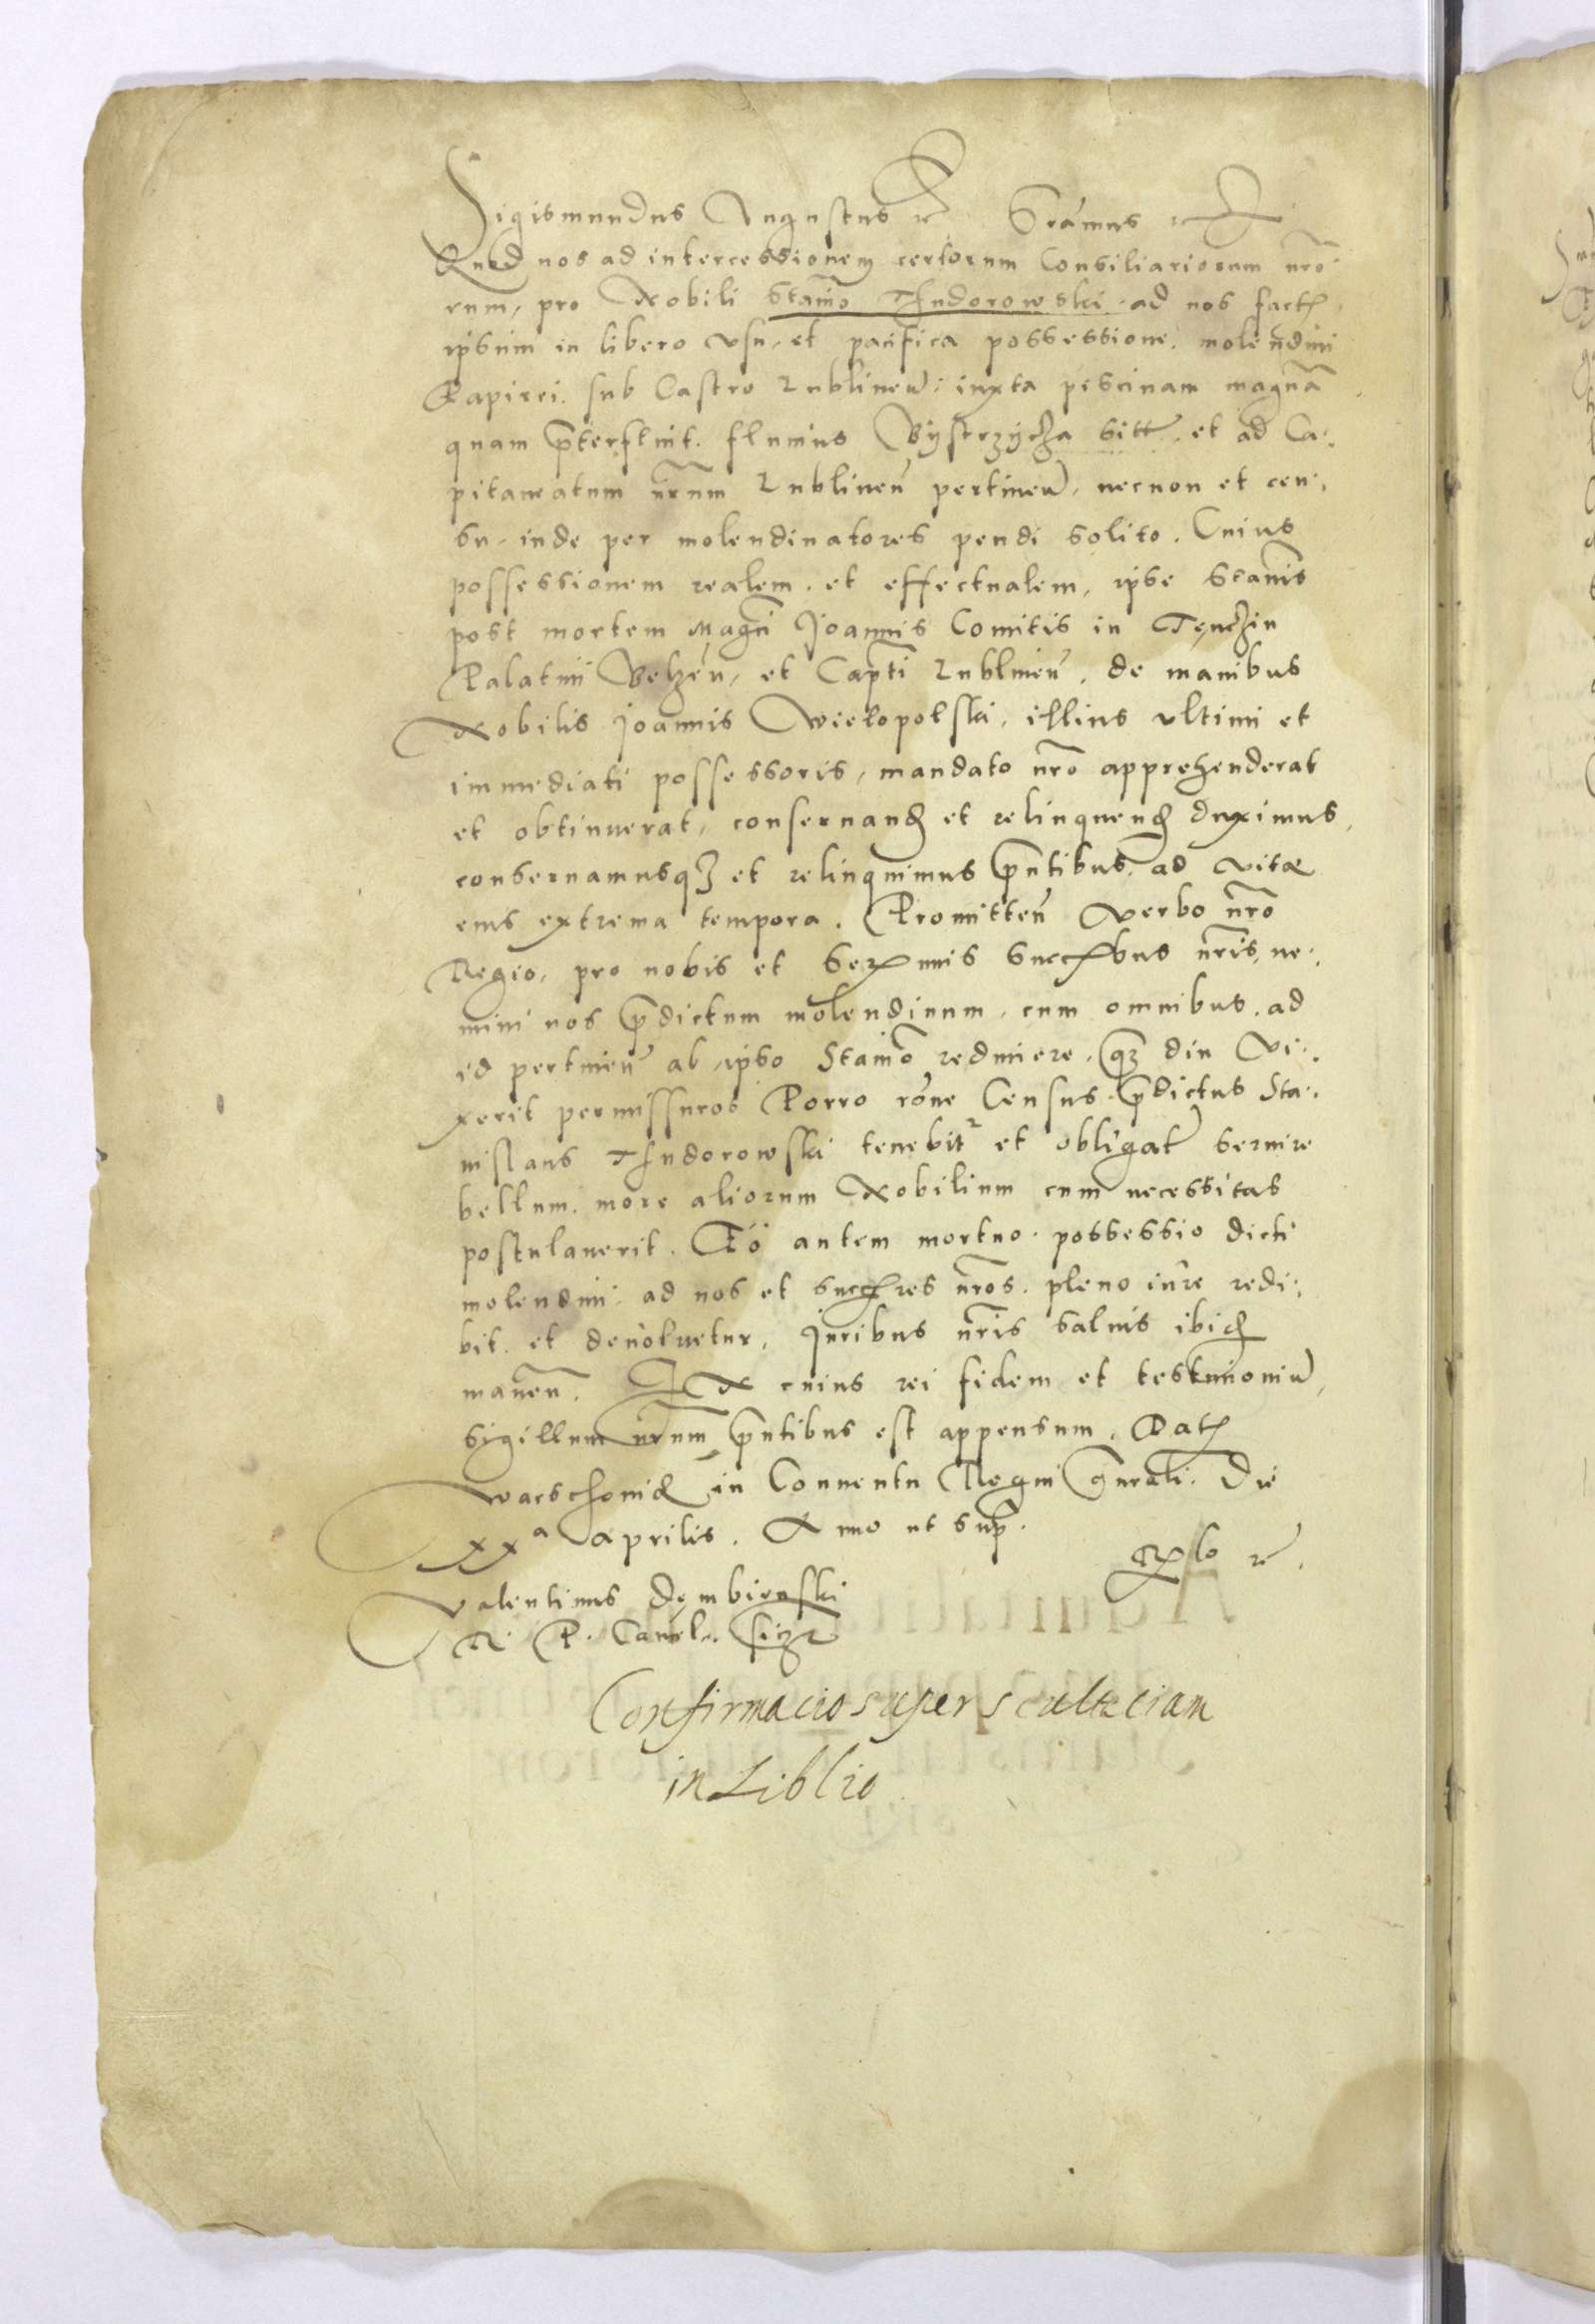 Sigismundus Augustus rc Sramus rc
Quod nos ad intercessionem certorum Consiliariorum nrō
rum, pro Nobili Stamo Thudorowski ad nos fact
ipsum in libero usu, et pacifica possessione, molendini
Papirei sub Castro Lublineń: iuxta piscinam magnā
quam pterfluit fluuius Bystrzycza sitt, et ad Ca:
pitaneatum nrum Lublineń pertineń, necnon et cen:
su, inde per molendinatores pendi solito. Cuius
possessionem realem, et effectualem, ipse Stanis
post mortem Magci Joannis Comitis in Tęnczin
Palatini Belzeń, et Capti Lublineń, de manibus
Nobilis Joannis Wielopolski, illius ultimi et
immediati possessoris, mandato nro apprehenderat
et obtinuerat, conseruand et relinquend duximus,
conseruamusq3 et relinquimus pntibus, ad vitæ
eius extrema tempora. Promitteń verbo nro
Regio, pro nobis et Sermis Succbus nris, ne:
mini nos pdictum molendinum, cum omnibus, ad
id pertineń ab ipso Stamo redimere, q3 diu vi:
xerit permissuros Porro rone Census pdictus Sta:
nislaus Thudorowski tenebitr et obligat seruire
bellum, more aliorum Nobilium cum necessitas
postulauerit. Eo autem mortuo possessio dicti
molendini ad nos et succres nros, pleno iure redi:
bit, et deuoluetur, Juribus nris saluis ibid
maneń. In cuius rei fidem et testimoniū,
sigillum nrum pntibus est appensum. Dat
Warschouiæ in Conuentu Regni gnrali. Die
xxa Aprilis. Anno ut sup.
Rlo rc.
Valentinus Dęmbienski
R. P. Cancel. sszt
Confirmacio super sculteciam
in Liblio